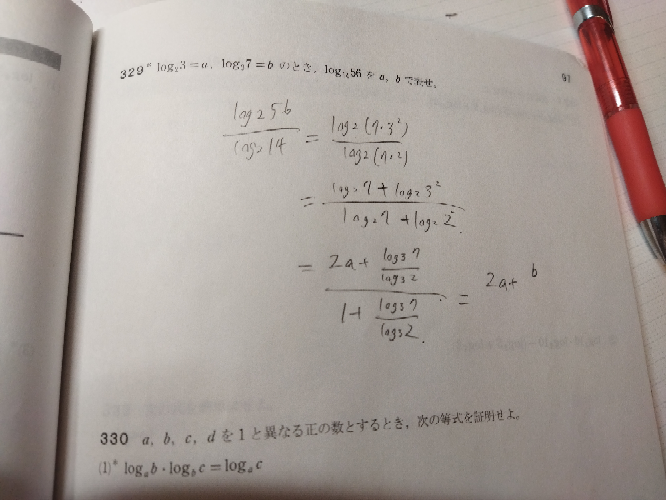 329* log₂3=a, log₃7=b のとき, log₁₄56 を a, b で表せ.
97
log₂56 / log₂14 = log₂(7·3²) / log₂(7·2)
= log₂7 + log₂3² / log₂7 + log₂2
= 2a + log₃7/log₃2 / 1 + log₃7/log₃2 = 2a + b
330 a, b, c, d を 1 と異なる正の数とするとき, 次の等式を証明せよ.
(1)* logₐb · log_b c = logₐc